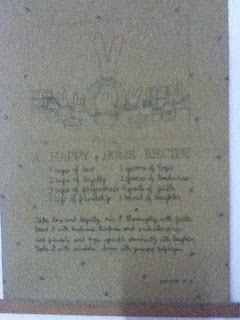 A HAPPY HOME RECIPE
4 cups of love 5 spoons of hope
2 cups of loyalty 2 spoons of tenderness
3 cups of forgiveness 4 quarts of faith
1 cup of friendship 1 barrel of laughter
Take love and loyalty, mix it thoroughly with faith
Blend it with tenderness, kindness and understanding
Add friendship and hope, sprinkle abundantly with laughter
Bake it with sunshine. Serve with generous helpings